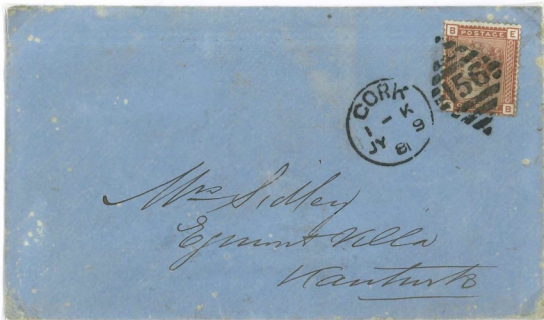 B POSTAGE E
B
156
CORK
1 K
1 9
JY 81
Mrs Sidley
Egmont Villa
Kanturk